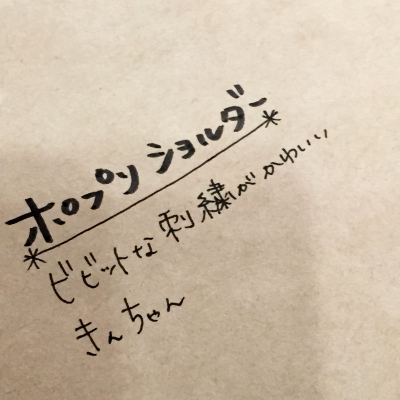 ポプリショルダー
ビビットな刺繍がかわいい
きんちゃん